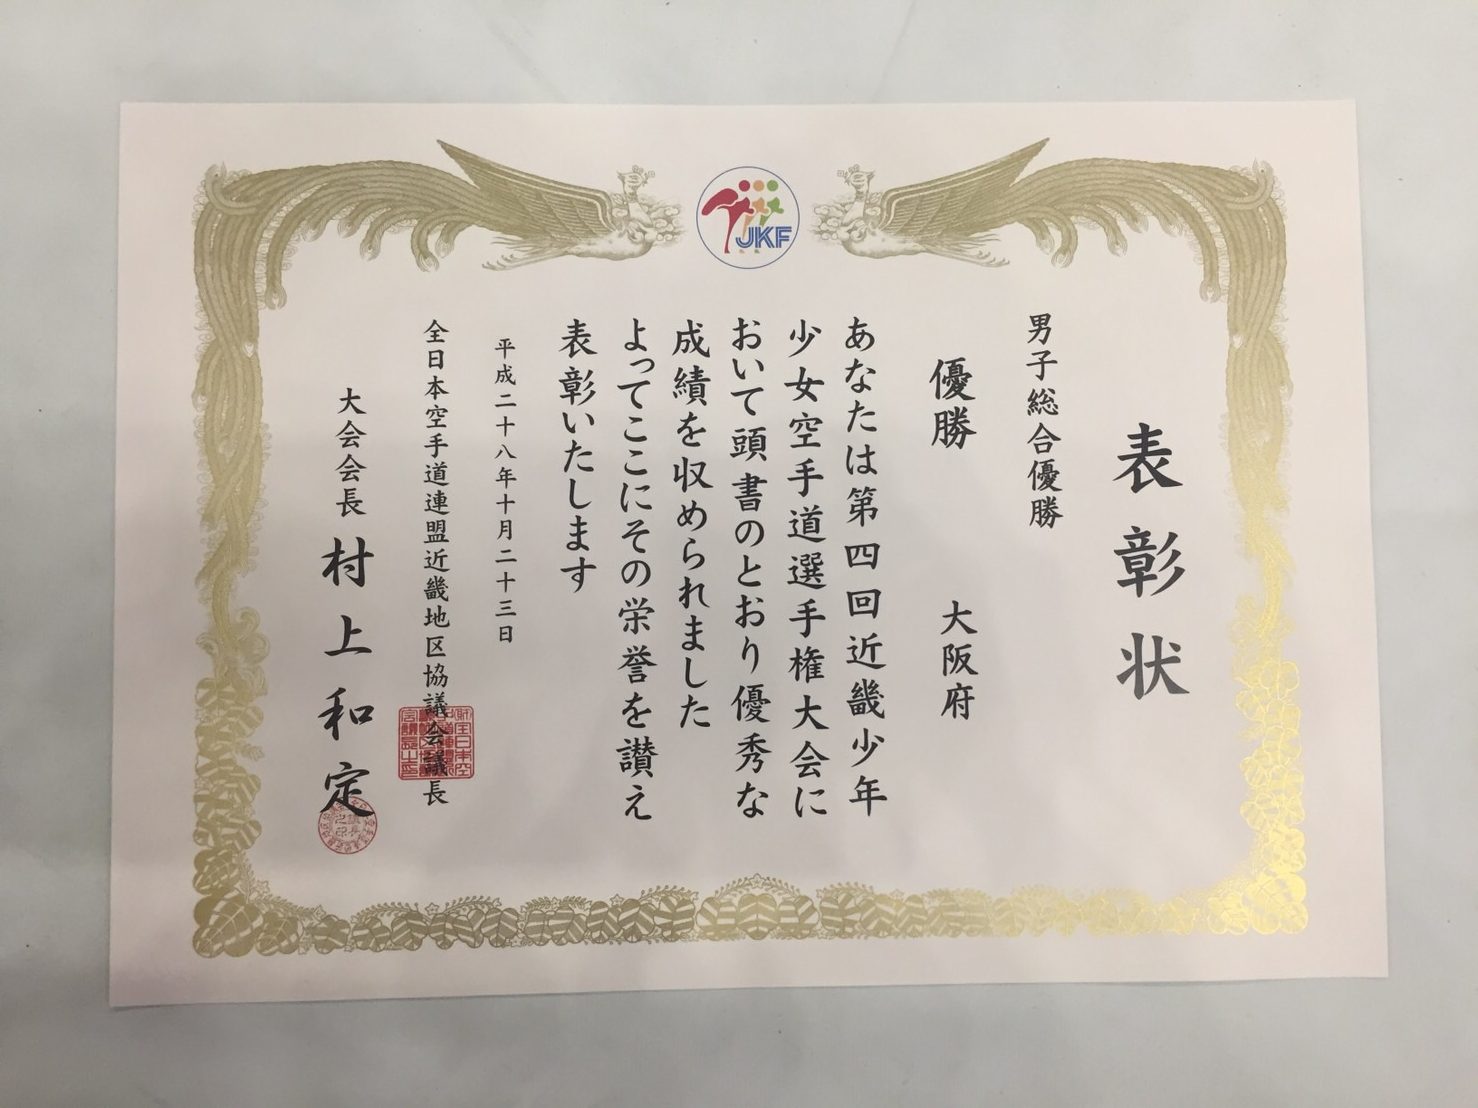 JKF
表彰状
男子総合優勝
優勝　大阪府
あなたは第四回近畿少年
少女空手道選手権大会に
おいて頭書のとおり優秀な
成績を収められました
よってここにその栄誉を讃え
表彰いたします
平成二十八年十月二十三日
全日本空手道連盟近畿地区協議会議長
大会会長 村上和定